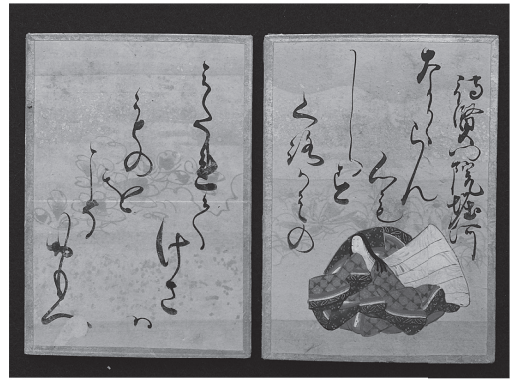 待賢門院堀河
なかゝらん
心も
しらす
くろかみの
みたれて
けさハ
ものを
こそ
おもへ